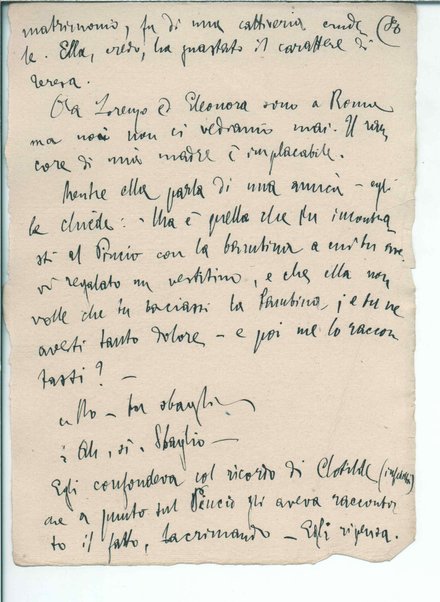 matrimonio, fu di una cattiveria crude (80
le. Ella, credo, ha guastato il carattere di
Teresa.
Ora Lorenzo ed Eleonora sono a Roma
ma noi non ci vediamo mai. Il ran
core di mia madre è implacabile.
Mentre ella parla di una amica – egli
le chiede: – Ma è quella che tu incontra
sti al Pincio con la bambina a cui tu ave
vi regalato un vestitino, e che ella non
volle che tu baciassi la bambina, e tu ne
avesti tanto dolore – e poi me lo raccon
tasti? –
No – tu sbagli
Ah, sì. Sbaglio –
Egli confondeva col ricordo di Clotilde
che a punto sul Pincio gli aveva racconta
to il fatto, lacrimando – Egli ripensa.